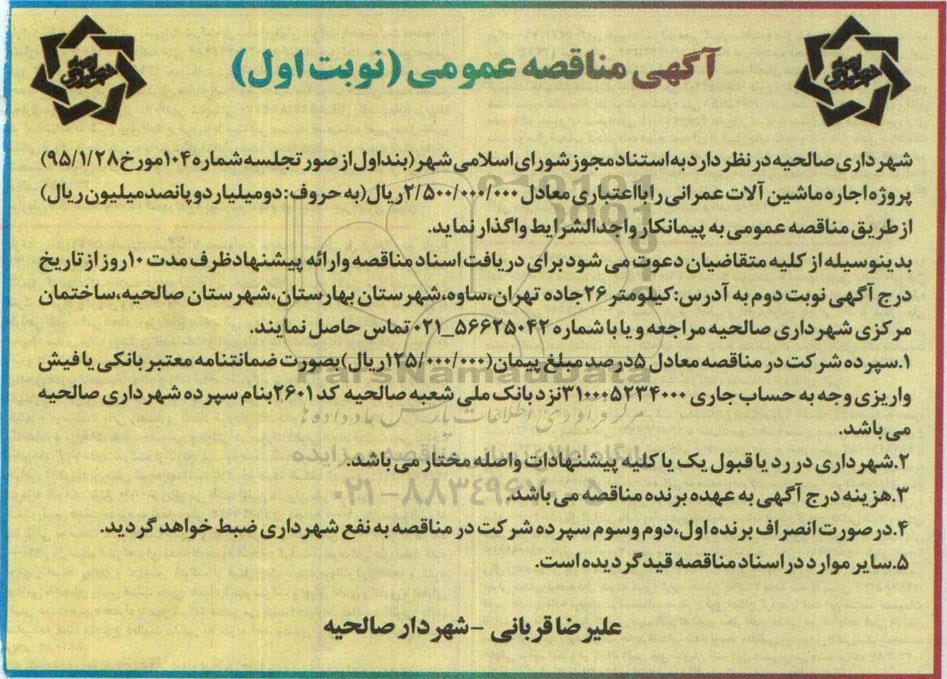 آگهی مناقصه عمومی (نوبت اول)
شهرداری صالحیه در نظر دارد به استناد مجوز شورای اسلامی شهر (بند اول از صورتجلسه شماره ۱۰۴ مورخ ۹۵/۱/۲۸)
پروژه اجاره ماشین آلات عمرانی را با اعتباری معادل ۲/۵۰۰/۰۰۰/۰۰۰ ریال (به حروف: دو میلیارد و پانصد میلیون ریال)
از طریق مناقصه عمومی به پیمانکار واجد الشرایط واگذار نماید.
بدینوسیله از کلیه متقاضیان دعوت می شود برای دریافت اسناد مناقصه و ارائه پیشنهاد ظرف مدت ۱۰ روز از تاریخ
درج آگهی نوبت دوم به آدرس: کیلومتر ۲۶ جاده تهران، ساوه، شهرستان بهارستان، شهرستان صالحیه، ساختمان
مرکزی شهرداری صالحیه مراجعه و یا با شماره ۵۶۶۲۵۰۴۲_۰۲۱ تماس حاصل نمایند.
۱. سپرده شرکت در مناقصه معادل ۵ درصد مبلغ پیمان (۱۲۵/۰۰۰/۰۰۰ ریال) بصورت ضمانتنامه معتبر بانکی یا فیش
واریزی وجه به حساب جاری ۳۱۰۰۰۵۲۳۴۰۰۰ نزد بانک ملی شعبه صالحیه کد ۲۶۰۱ بنام سپرده شهرداری صالحیه
می باشد.
۲. شهرداری در رد یا قبول یک یا کلیه پیشنهادات واصله مختار می باشد.
۳. هزینه درج آگهی به عهده برنده مناقصه می باشد.
۴. در صورت انصراف برنده اول، دوم و سوم سپرده شرکت در مناقصه به نفع شهرداری ضبط خواهد گردید.
۵. سایر موارد در اسناد مناقصه قید گردیده است.
علیرضا قربانی - شهردار صالحیه
ParsNamadData
مرکز فرآوری اطلاعات پارس نماد داده ها
پایگاه اطلاع رسانی مناقصه و مزایده
۰۲۱-۸۸۳۴۹۶۷۰-۵